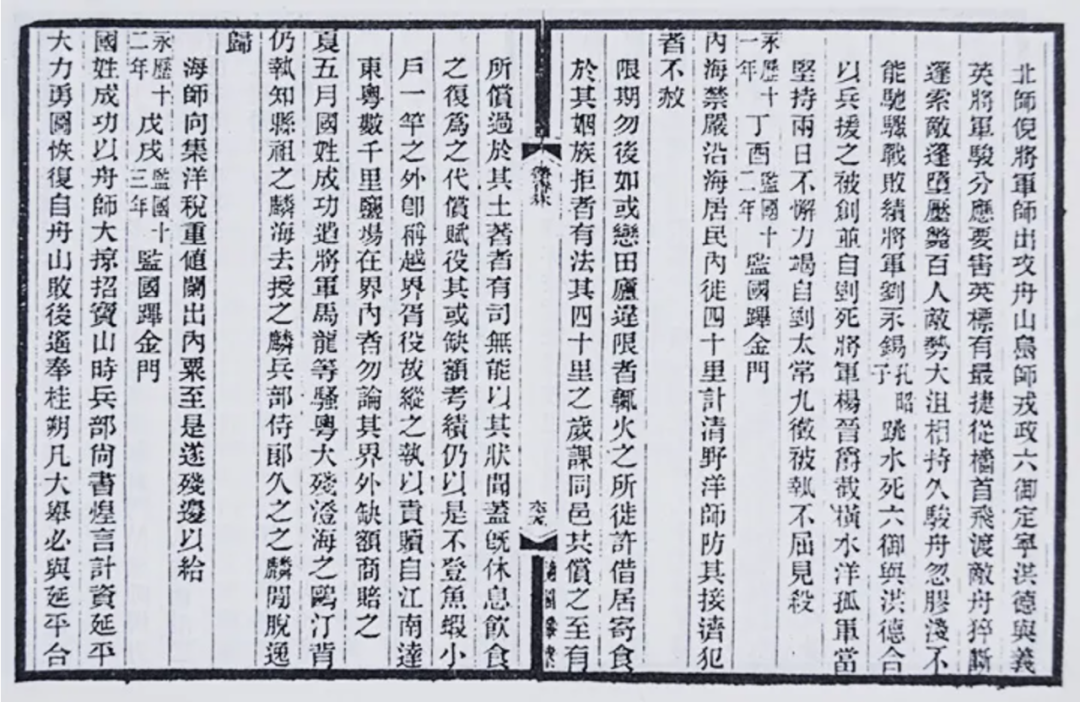 北師倪將軍師出攻舟山島師戎政六御定寧洪德與義
英將軍駿分應要害英標有最捷從檣首飛渡敵舟猝斷
蓬索敵蓬墮壓斃百人敵勢大沮相持久駿舟忽膠淺不
能馳驟戰敗績將軍劉永錫孔昭子跳水死六御與洪德合
以兵援之被創並自剄死將軍楊晉爵截橫水洋孤軍當
堅持兩日不懈力竭自剄太常九徵被執不屈見殺
永歷十一年丁酉監國十二年監國蹕金門
內海禁嚴沿海居民內徙四十里計清野洋師防其接濟犯
者不赦
限期勿後如或戀田廬違限者輒火之所徙許借居寄食
於其姻族拒者有法其四十里之歲課同邑共償之至有
所償過於其土著者有司無能以其狀聞蓋旣休息飮食
之復爲之代償賦役其或缺額考績仍以是不登魚蝦小
戶一竿之外卽稱越界胥役故縱之執以責贖自江南達
東粵數千里鹽場在界內者勿論其界外缺額商賠之
夏五月國姓成功遣將軍馬龍等騷粵大殘澄海之鷗汀背
仍執知縣祖之麟海去授之麟兵部侍郞久之之麟閒脫逸
歸
海師向集洋稅重値闌出內粟至是遂殘邊以給
永歷十二年戊戌監國十三年監國蹕金門
國姓成功以舟師大掠招寶山時兵部尙書煌言計資延平
大力勇圖恢復自舟山敗後遙奉桂朔凡大舉必與延平台